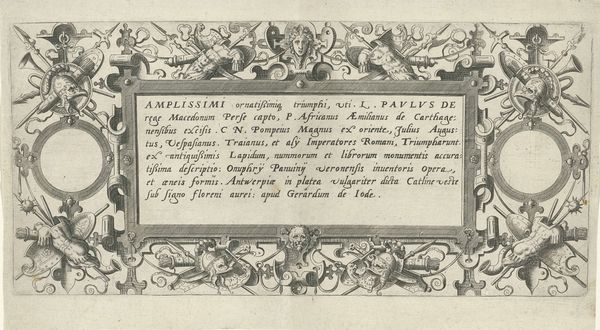 AMPLISSIMI ornatissimiq triumphi, uti L. PAVLVS DE
rege Macedonum Perse capto, P. Africanus Æmilianus de Carthage:
nensibus excisis. C N. Pompeius Magnus ex oriente, Julius Augus:
tus, Vespasianus. Traianus, et alÿ Imperatores Romani, Triumpharunt
ex antiquissimis Lapidum, nummorum et librorum monumentis accura
tissima descriptio: Onuphrÿ Panuinÿ veronensis inuentoris Opera,
et æneis formis. Antwerpiæ in platea vulgariter dicta Catline veste
sub signo floreni aurei: apud Gerardum de Iode.